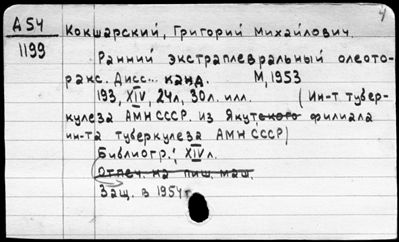 4
А 54 Кокшарский, Григорий Михайлович.
1199 Ранний экстраплевральный олеото-
ракс. Дисс... канд. М, 1953
193, XIV, 24л, 30л. илл. (Ин-т тубер-
кулеза АМН СССР. из Якутского филиала
ин-та туберкулеза АМН СССР)
Библиогр.: XIV л.
Отпеч. на пиш. маш.
Защ. в 1954 г.